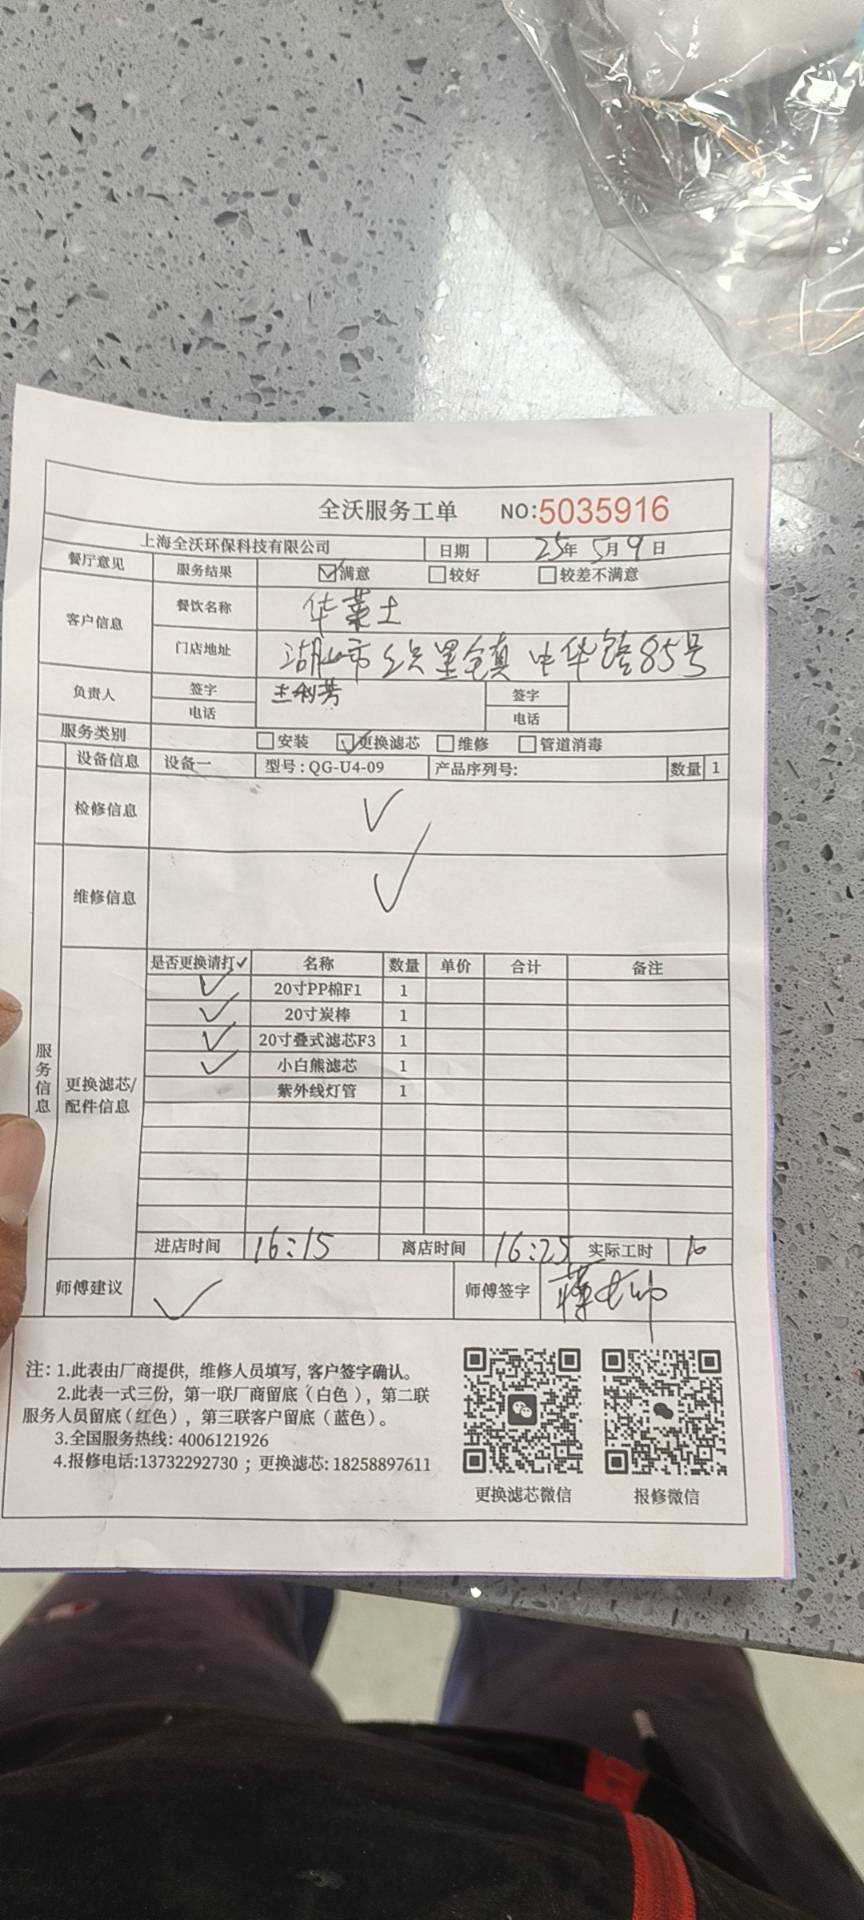 全沃服务工单 NO:5035916
上海全沃环保科技有限公司 日期 25年 5月 9日
餐厅意见 服务结果 ☑满意 ☐较好 ☐较差不满意
客户信息 餐饮名称 华莱士
门店地址 湖州市织里镇中华路85号
负责人 签字 签字
电话 电话
服务类别 ☐安装 ☑更换滤芯 ☐维修 ☐管道消毒
设备信息 设备一 型号:QG-U4-09 产品序列号: 数量 1
检修信息 ✓
维修信息 ✓
服务信息
更换滤芯/配件信息
是否更换请打✓ 名称 数量 单价 合计 备注
✓ 20寸PP棉F1 1
✓ 20寸炭棒 1
✓ 20寸叠式滤芯F3 1
✓ 小白熊滤芯 1
紫外线灯管 1
进店时间 16:15 离店时间 16:25 实际工时 10
师傅建议 ✓ 师傅签字
注: 1.此表由厂商提供, 维修人员填写, 客户签字确认。
2.此表一式三份, 第一联厂商留底(白色), 第二联
服务人员留底(红色), 第三联客户留底(蓝色)。
3.全国服务热线: 4006121926
4.报修电话:13732292730 ; 更换滤芯: 18258897611
更换滤芯微信 报修微信